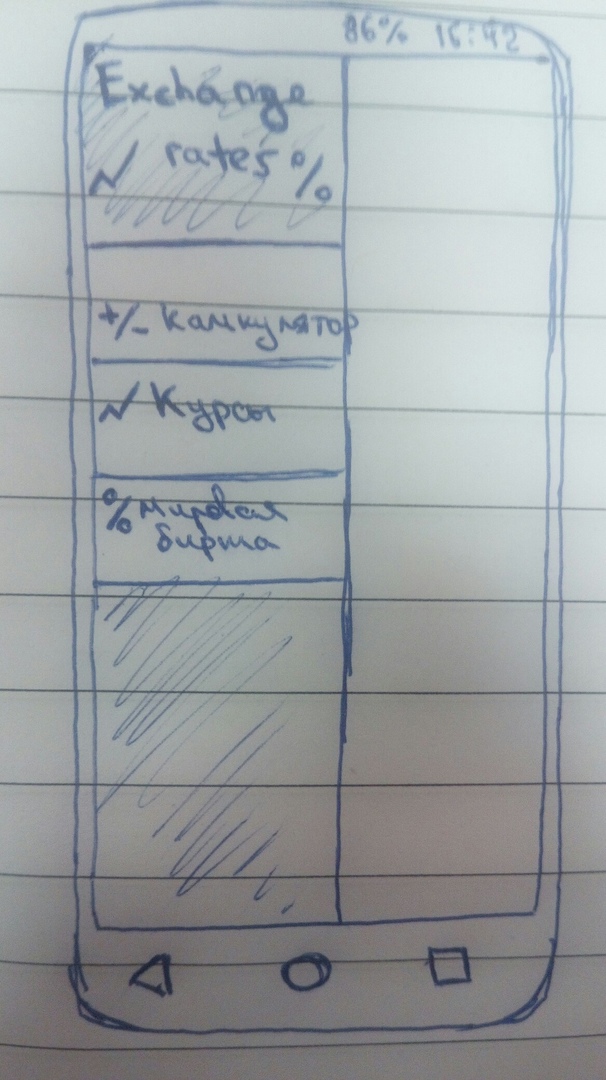 86% 16:42
Exchange
rates %
+/- Калькулятор
Курсы
% Мировая
биржа